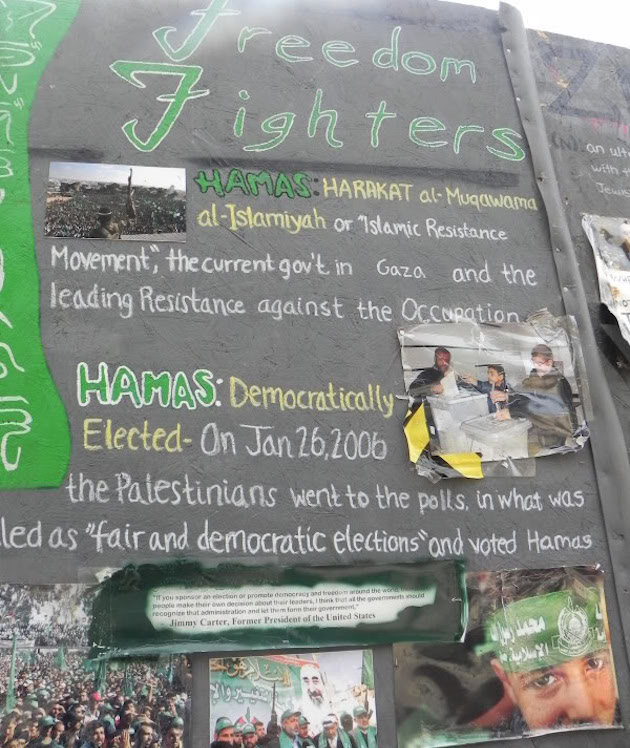 Freedom
Fighters
HAMAS: HARAKAT al-Muqawama
al-Islamiyah or "Islamic Resistance
Movement", the current gov't in Gaza and the
leading Resistance against the Occupation
HAMAS: Democratically
Elected- On Jan 26, 2006
the Palestinians went to the polls, in what was
led as "fair and democratic elections" and voted Hamas
"If you sponsor an election or promote democracy and freedom around the world,
people make their own decision about their leaders, I think that all the governments should
recognize that administration and let them form their government."
Jimmy Carter, Former President of the United States
محمد رسول الله
an ult
with t
Jewis